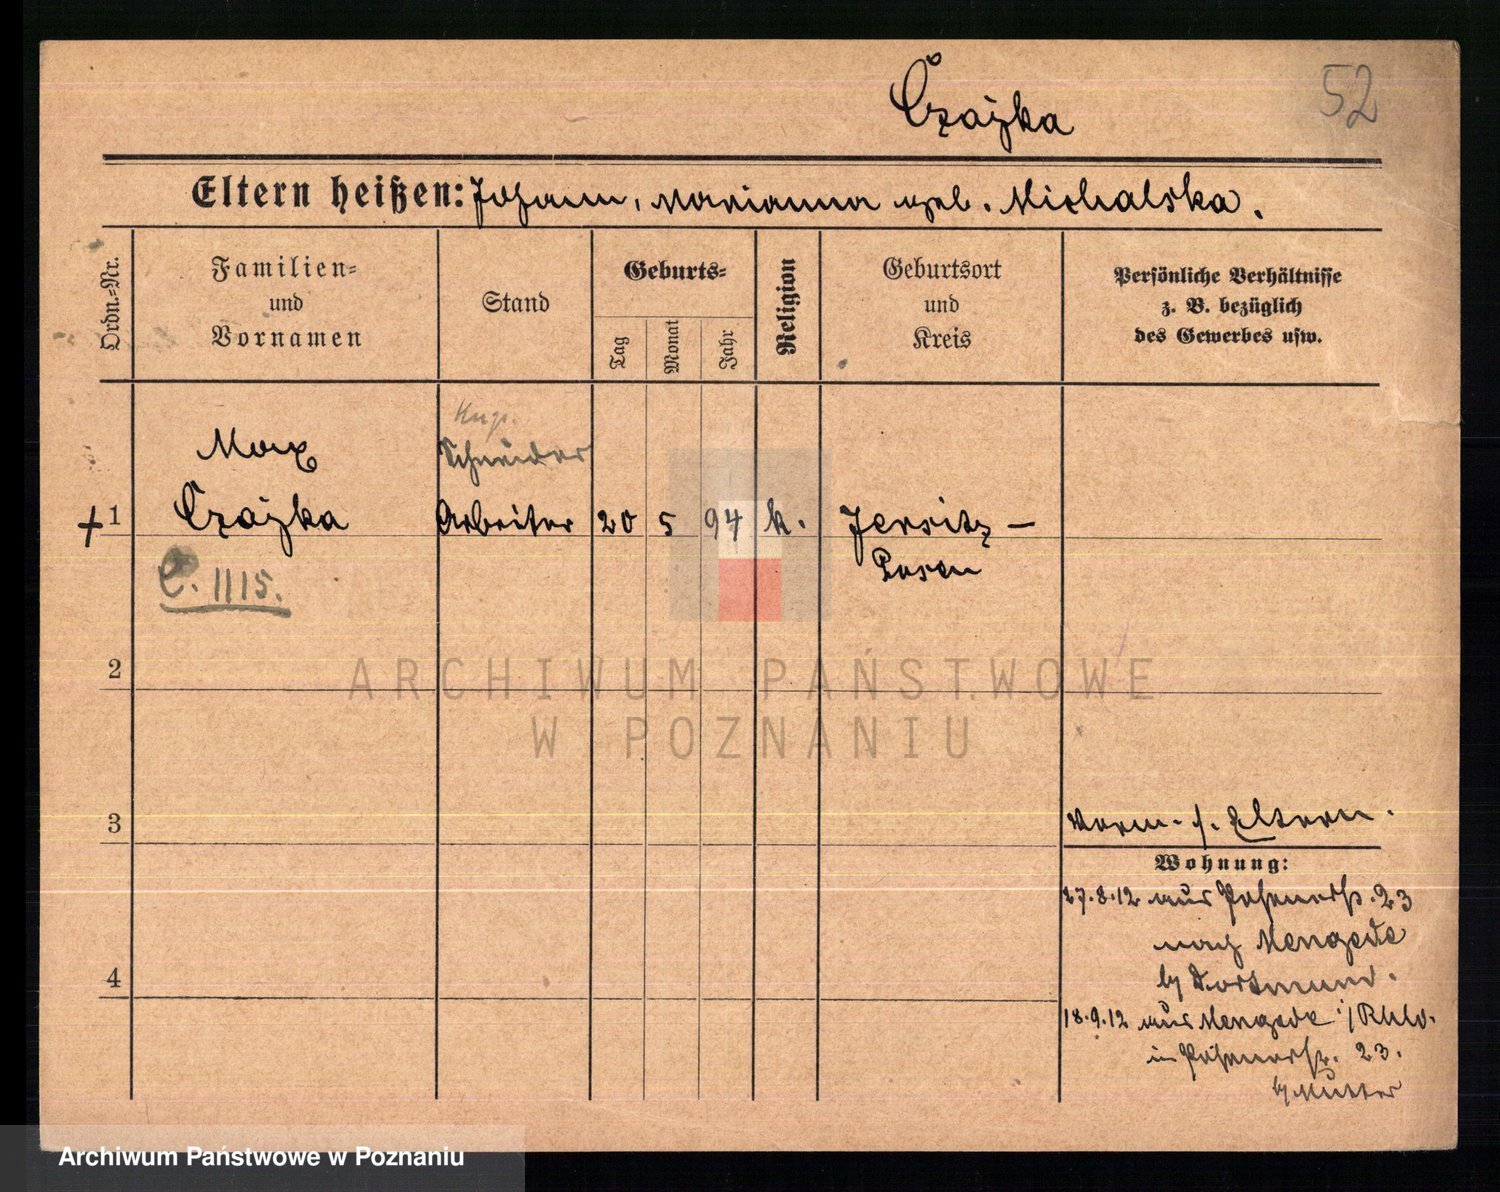 Czajka
52
Eltern heißen: Johann, Marianna geb. Michalska.
Ordn.-Nr.
Familien-
und
Vornamen
Stand
Geburts-
Tag
Monat
Jahr
Religion
Geburtsort
und
Kreis
Persönliche Verhältnisse
z. B. bezüglich
des Gewerbes usw.
Max
Schneider
1
Czajka
Arbeiter
20
5
94
k.
Jersitz -
Posen
C. 1115.
2
ARCHIWUM PAŃSTWOWE
W POZNANIU
3
Eltern.
Wohnung:
27.8.12 aus Posenerstr. 23
nach Mengede
b/ Dortmund.
18.9.12 aus Mengede i/Rhld.
in Posenerstr. 23.
b/ Mutter
4
Archiwum Państwowe w Poznaniu